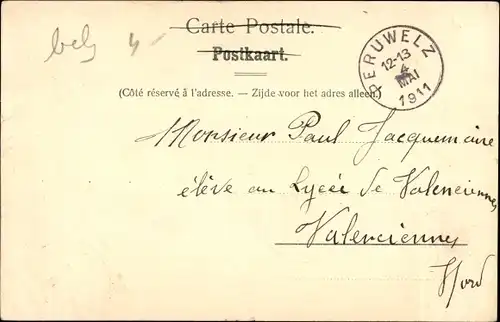 Carte Postale.
Postkaart.
(Côté réservé à l'adresse. — Zijde voor het adres alleen.)
PERUWELZ
12-13
4
MAI
1911
belg 4
Monsieur Paul Jacquemaire
élève au Lycée de Valenciennes
Valenciennes
Nord